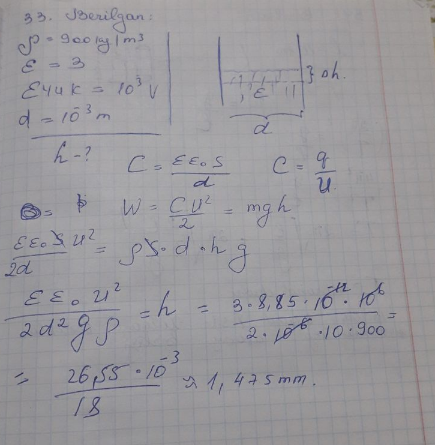 33. Berilgan:
ρ = 900 kg/m³
ε = 3
εчик = 10³ V
d = 10⁻³ m
h - ?
Δh.
ε
d
C = εε₀S/d   C = q/U
W = CU²/2 = mgh
εε₀S U²/2d = ρS·d·h g
εε₀U²/2d²gρ = h = 3·8,85·10⁻¹²·10⁶/2·10⁻⁶·10·900 =
= 26,55·10⁻³/18 ≈ 1,475 mm.